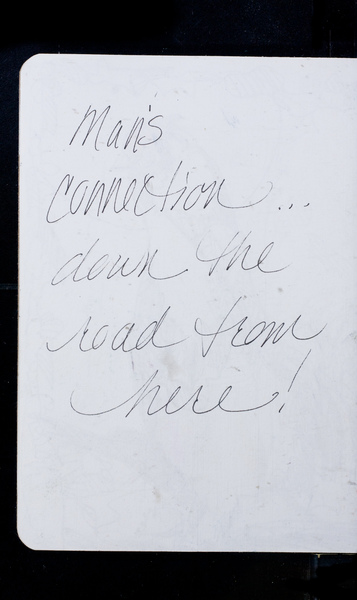 Man's
connection...
down the
road from
here!